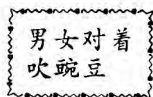 男女对着
吹豌豆